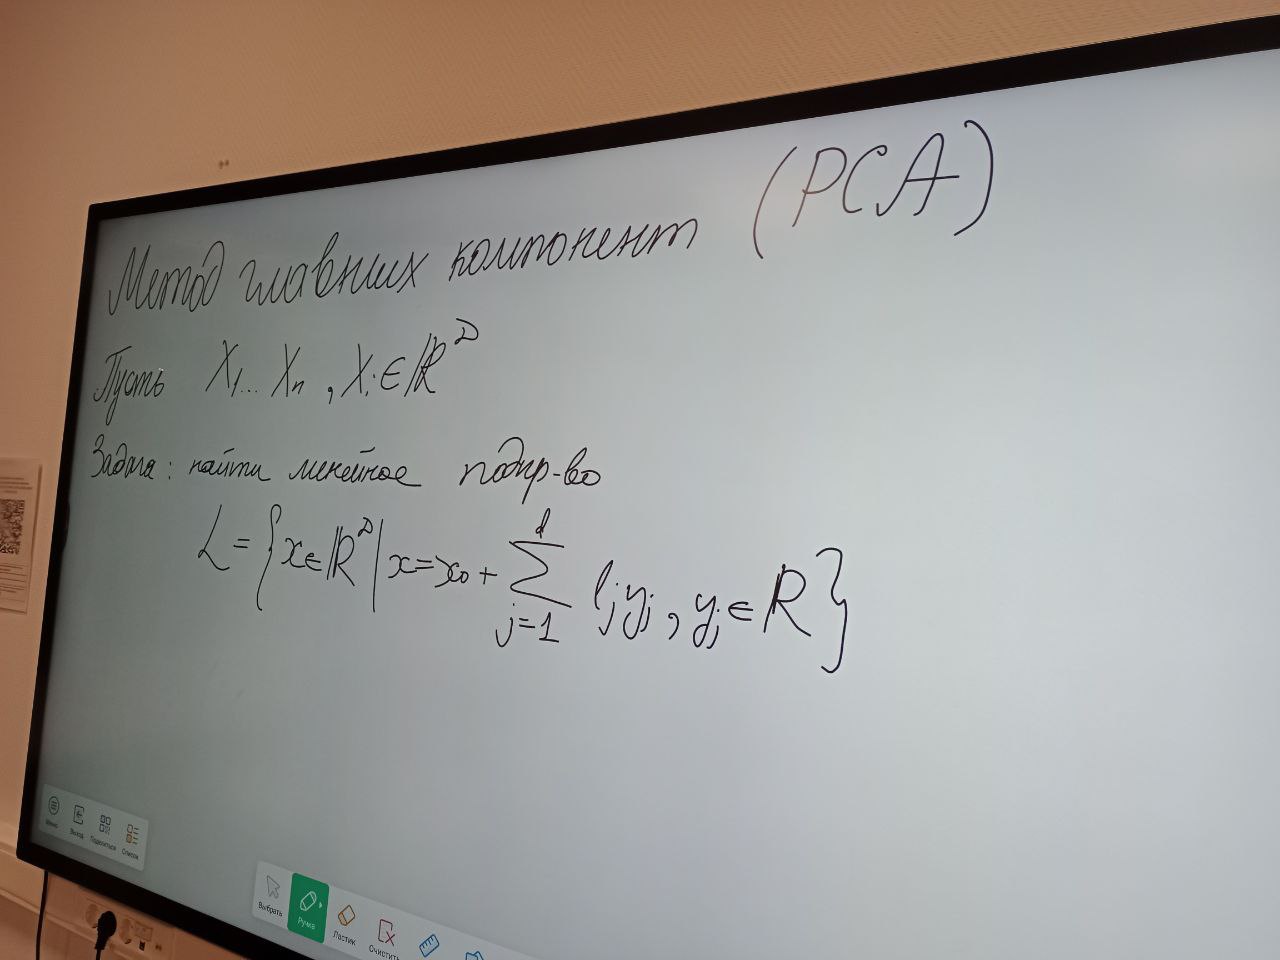 Метод главных компонент (PCA)
Пусть X₁... Xₙ, Xᵢ ∈ ℝᴰ
Задача: найти линейное подпр-во
L = {x ∈ ℝᴰ | x = x₀ + ∑_{j=1}^{d} l_j y_j, y_j ∈ ℝ}
Меню Выход Поделиться Список
Выбрать Ручка Ластик Очистить